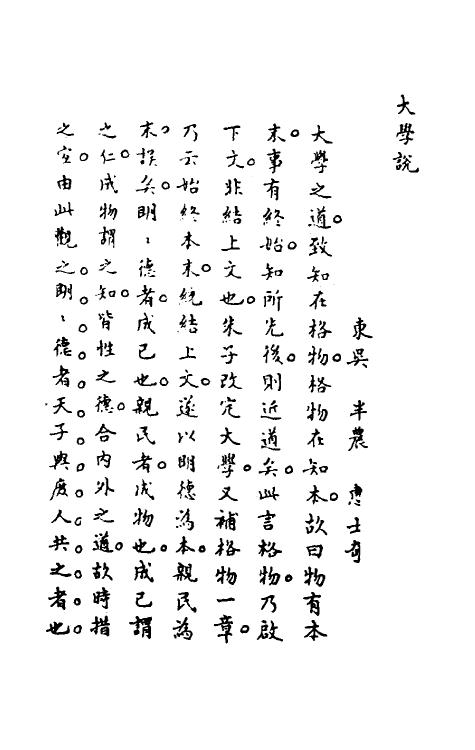 大學說
東吳 半農 惠士奇
大學之道。致知在格物。格物在知本。故曰物有本
末。事有終始。知所先後。則近道矣。此言格物。乃啟
下文。非結上文也。朱子改定大學。又補格物一章。
乃云始終本末。統結上文。遂以明德為本。親民為
末。誤矣。明〻德者。成己也。親民者。成物也。成己謂
之仁。成物謂之知。皆性之德。合內外之道。故時措
之宜。由此觀之。明〻德者。天子與庶人共之者也。